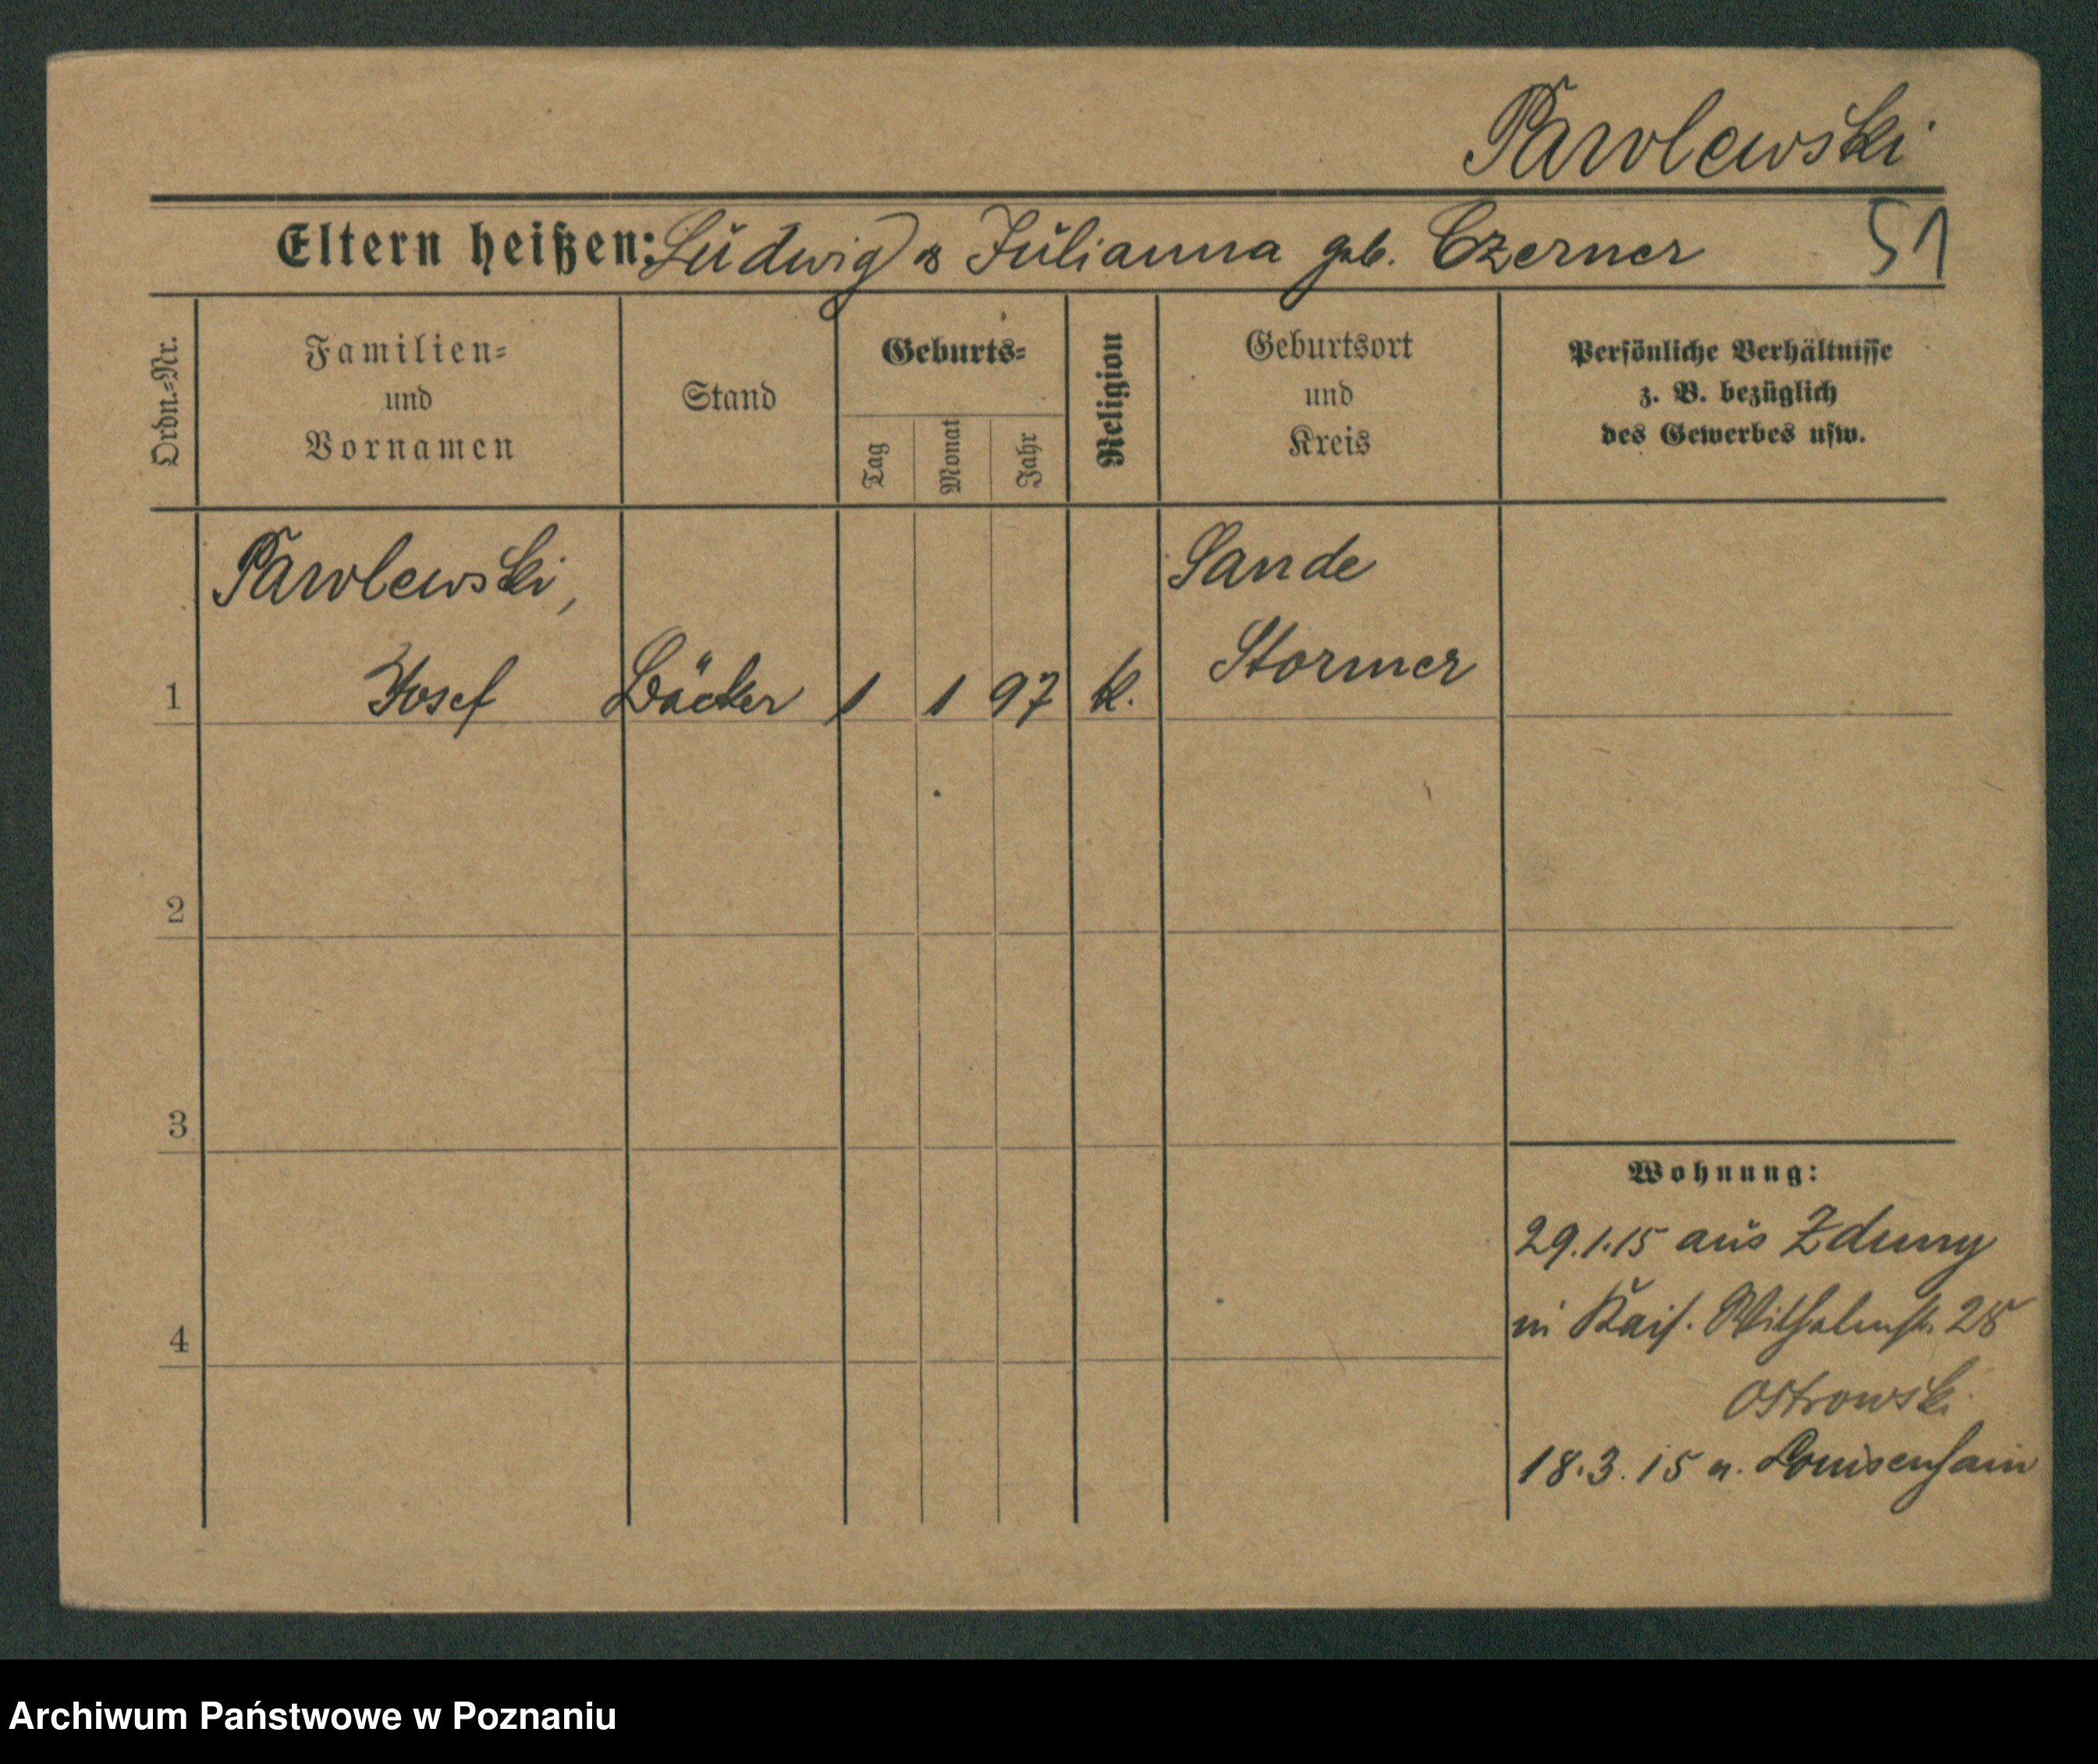 Pawlewski
Eltern heißen: Ludwig & Julianna geb. Czerner 51
Ordn.=Nr.
Familien=
und
Vornamen
Stand
Geburts=
Tag
Monat
Jahr
Religion
Geburtsort
und
Kreis
Persönliche Verhältnisse
z. B. bezüglich
des Gewerbes usw.
Pawlewski,
Sande
Stormer
1 Josef Bäcker 1 1 97 k.
2
3
4
Wohnung:
29.1.15 aus Zduny
in Kais. Wilhelmstr. 28
Ostrowski
18.3.15 n. Louisenhain
Archiwum Państwowe w Poznaniu